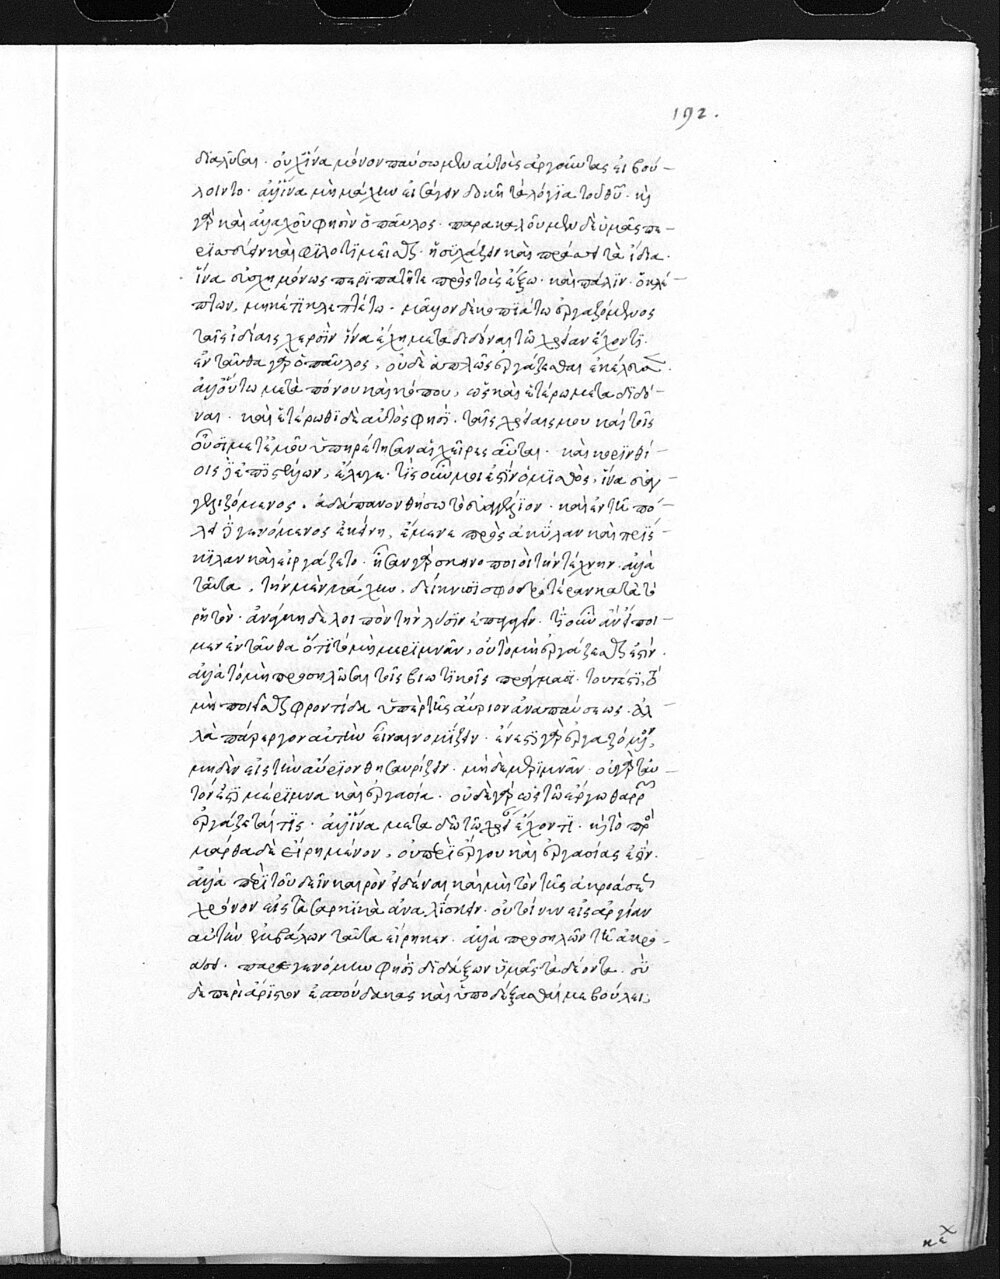 192.
διαλῦσαι. οὐχ ἵνα μόνον παύσωμεν αὐτοὺς ἀργοῦντας εἰ βού-
λοιντο. ἀλλ' ἵνα μὴ μάχην εἰσάγειν δοκῇ τὰ λόγια τοῦ θῦ. κỳ
γὰρ καὶ ἀλλαχοῦ φησὶν ὁ παῦλος. παρακαλοῦμεν δὲ ὑμᾶς πε-
ρισσεύειν καὶ φιλοτιμεῖσθαι. ἡσυχάζειν καὶ πράττειν τὰ ἴδια.
ἵνα εὐσχημόνως περιπατῆτε πρὸς τοὺς ἔξω. καὶ πάλιν. ὁ κλέ-
πτων, μηκέτι κλεπτέτω. μᾶλλον δὲ κοπιάτω ἐργαζόμενος
ταῖς ἰδίαις χερσὶν ἵνα ἔχῃ μεταδιδόναι τῷ χρείαν ἔχοντι.
ἐνταῦθα γὰρ ὁ παῦλος, οὐδὲ ἁπλῶς ἐργάζεσθαι ἐκέλευσεν.
ἀλλ' οὕτω μετὰ πόνου καὶ κόπου, ὡς καὶ ἑτέρω μεταδιδό-
ναι. καὶ ἑτέρωθι δὲ αὐτὸς φησὶ. ταῖς χρείαις μου καὶ τοῖς
οὖσι μετ' ἐμοῦ ὑπηρέτησαν αἱ χεῖρες αὗται. καὶ κορινθί-
οις δὲ ἐπιστέλλων, ἔλεγε. τίς οὖν μοι ἐστὶν ὁ μισθὸς, ἵνα εὐαγ-
γελιζόμενος, ἀδάπανον θήσω τὸ εὐαγγέλιον. καὶ ἐν τῇ πό-
λει δὲ γενόμενος ἐκείνη, ἔμενε πρὸς ἀκύλαν καὶ πρίσ-
κιλαν καὶ εἰργάζετο. ἦσαν γὰρ σκηνοποιοὶ τὴν τέχνην. ἀλλὰ
ταῦτα, τὴν μὲν μάχην, δείκνυσι σφοδροτέραν κατὰ τὸ
ῥητὸν. ἀνάγκη δὲ λοιπὸν τὴν λύσιν ἐπαγαγεῖν. τί οὖν ἂν εἴποι-
μεν ἐνταῦθα ὅτι τὸ μὴ μεριμνᾶν, οὐ τὸ μὴ ἐργάζεσθαι ἐστὶν.
ἀλλὰ τὸ μὴ προσηλῶσθαι τοῖς βιωτικοῖς πράγμασι. τουτέστι, τὸ
μὴ ποιεῖσθαι φροντίδα ὑπὲρ τῆς αὔριον ἀναπαύσεως. ἀλ-
λὰ πάρεργον αὐτὴν εἶναι νομίζειν. ἔνεστι γὰρ ἐργαζόμενον,
μηδὲν εἰς τὴν αὔριον θησαυρίζειν. μὴ δὲ μεριμνᾶν. οὐ γὰρ ταυ-
τόν ἐστι μέριμνα καὶ ἐργασία. οὐδὲ γὰρ ὡς τῷ ἔργω θαρρῶν
ἐργάζεταί τις. ἀλλ' ἵνα μεταδῷ τῷ χρείαν ἔχοντι. κỳ τὸ πρὸς
μάρθα δὲ εἰρημένον, οὐ περὶ ἔργου καὶ ἐργασίας ἐστὶν.
ἀλλὰ περὶ τοῦ δεῖν καιρὸν εἰδέναι καὶ μὴ τὸν τῆς ἀκροάσεως
χρόνον εἰς τὰ σαρκικὰ ἀναλίσκειν. οὐ τοίνυν εἰς ἀργίαν
αὐτὴν ἐμβάλλων ταῦτα εἴρηκεν. ἀλλὰ προσηλῶν τῇ ἀκρο-
άσει. παρεγενόμην φησὶ διδάξων ὑμᾶς τὰ δέοντα. σὺ
δὲ περὶ ἄριστον ἐσπούδακας καὶ ὑποδέξασθαί με βούλει.